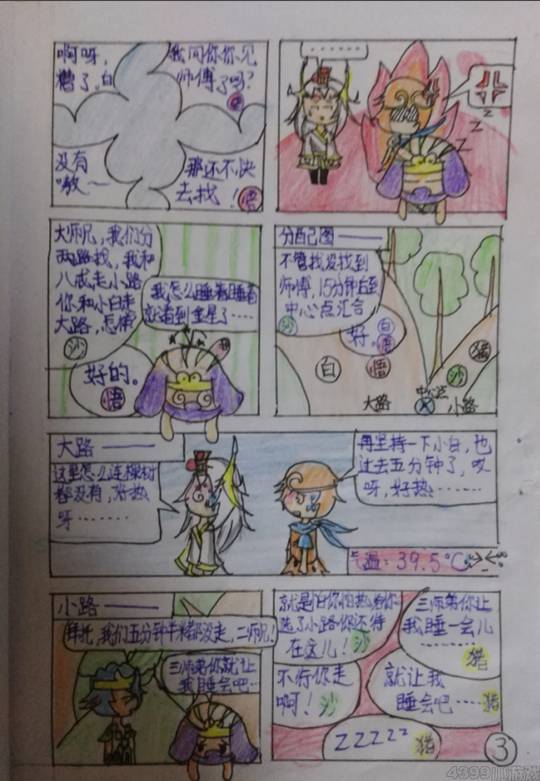 啊呀，
糟了，白
我问你你见
师傅了吗？
没有
嗷～
那还不快
去找！悟
………
Z
Z
Z
大师兄，我们分
两路找，我和
八戒走小路
你和小白走
大路，怎样
沙
我怎么睡着睡着
就看到金星了……
好的。
悟
分配图——
不管找没找到
师傅，15分钟后到
中心点汇合
沙
好。白
悟
白
悟
猪
沙
大路
中心点
小路
大路——
这里怎么连棵树
都没有，好热
呀………
再坚持一下小白，也
过去五分钟了，哎
呀，好热……
气温：39.5℃
小路——
拜托，我们五分钟半米都没走，二师兄！
三师弟你就让
我睡会吧…
就是怕你怕热才给你
选了小路你还待
在这儿！沙
三师弟你让
我睡一会儿
………猪
不行你走
啊！沙
就让我
睡会吧……猪
ZZZZZ 猪
3
4399小游戏